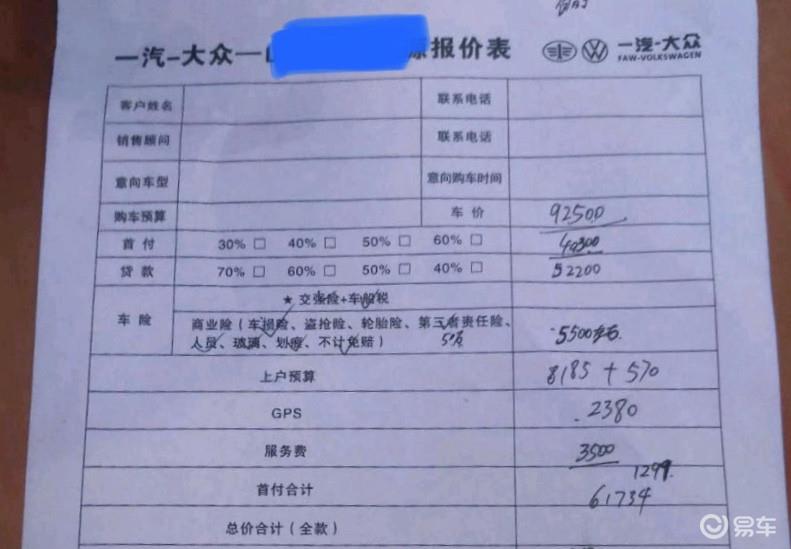 一汽-大众 报价表 一汽-大众
FAW-VOLKSWAGEN
客户姓名 联系电话
销售顾问 联系电话
意向车型 意向购车时间
购车预算 车价 92500
首付 30% □ 40% □ 50% □ 60% □ 40300
贷款 70% □ 60% □ 50% □ 40% □ 52200
车险 ★ 交强险+车船税
商业险(车损险、盗抢险、轮胎险、第三者责任险、
人员、玻璃、划痕、不计免赔) 5500左右
上户预算 8185 + 570
GPS 2380
服务费 3500
1299
首付合计 61734
总价合计(全款)
易车